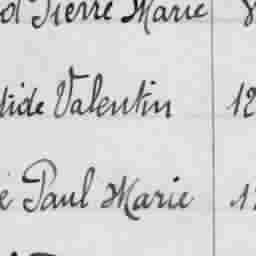 Pierre Marie
tide Valentin 12
é Paul Marie